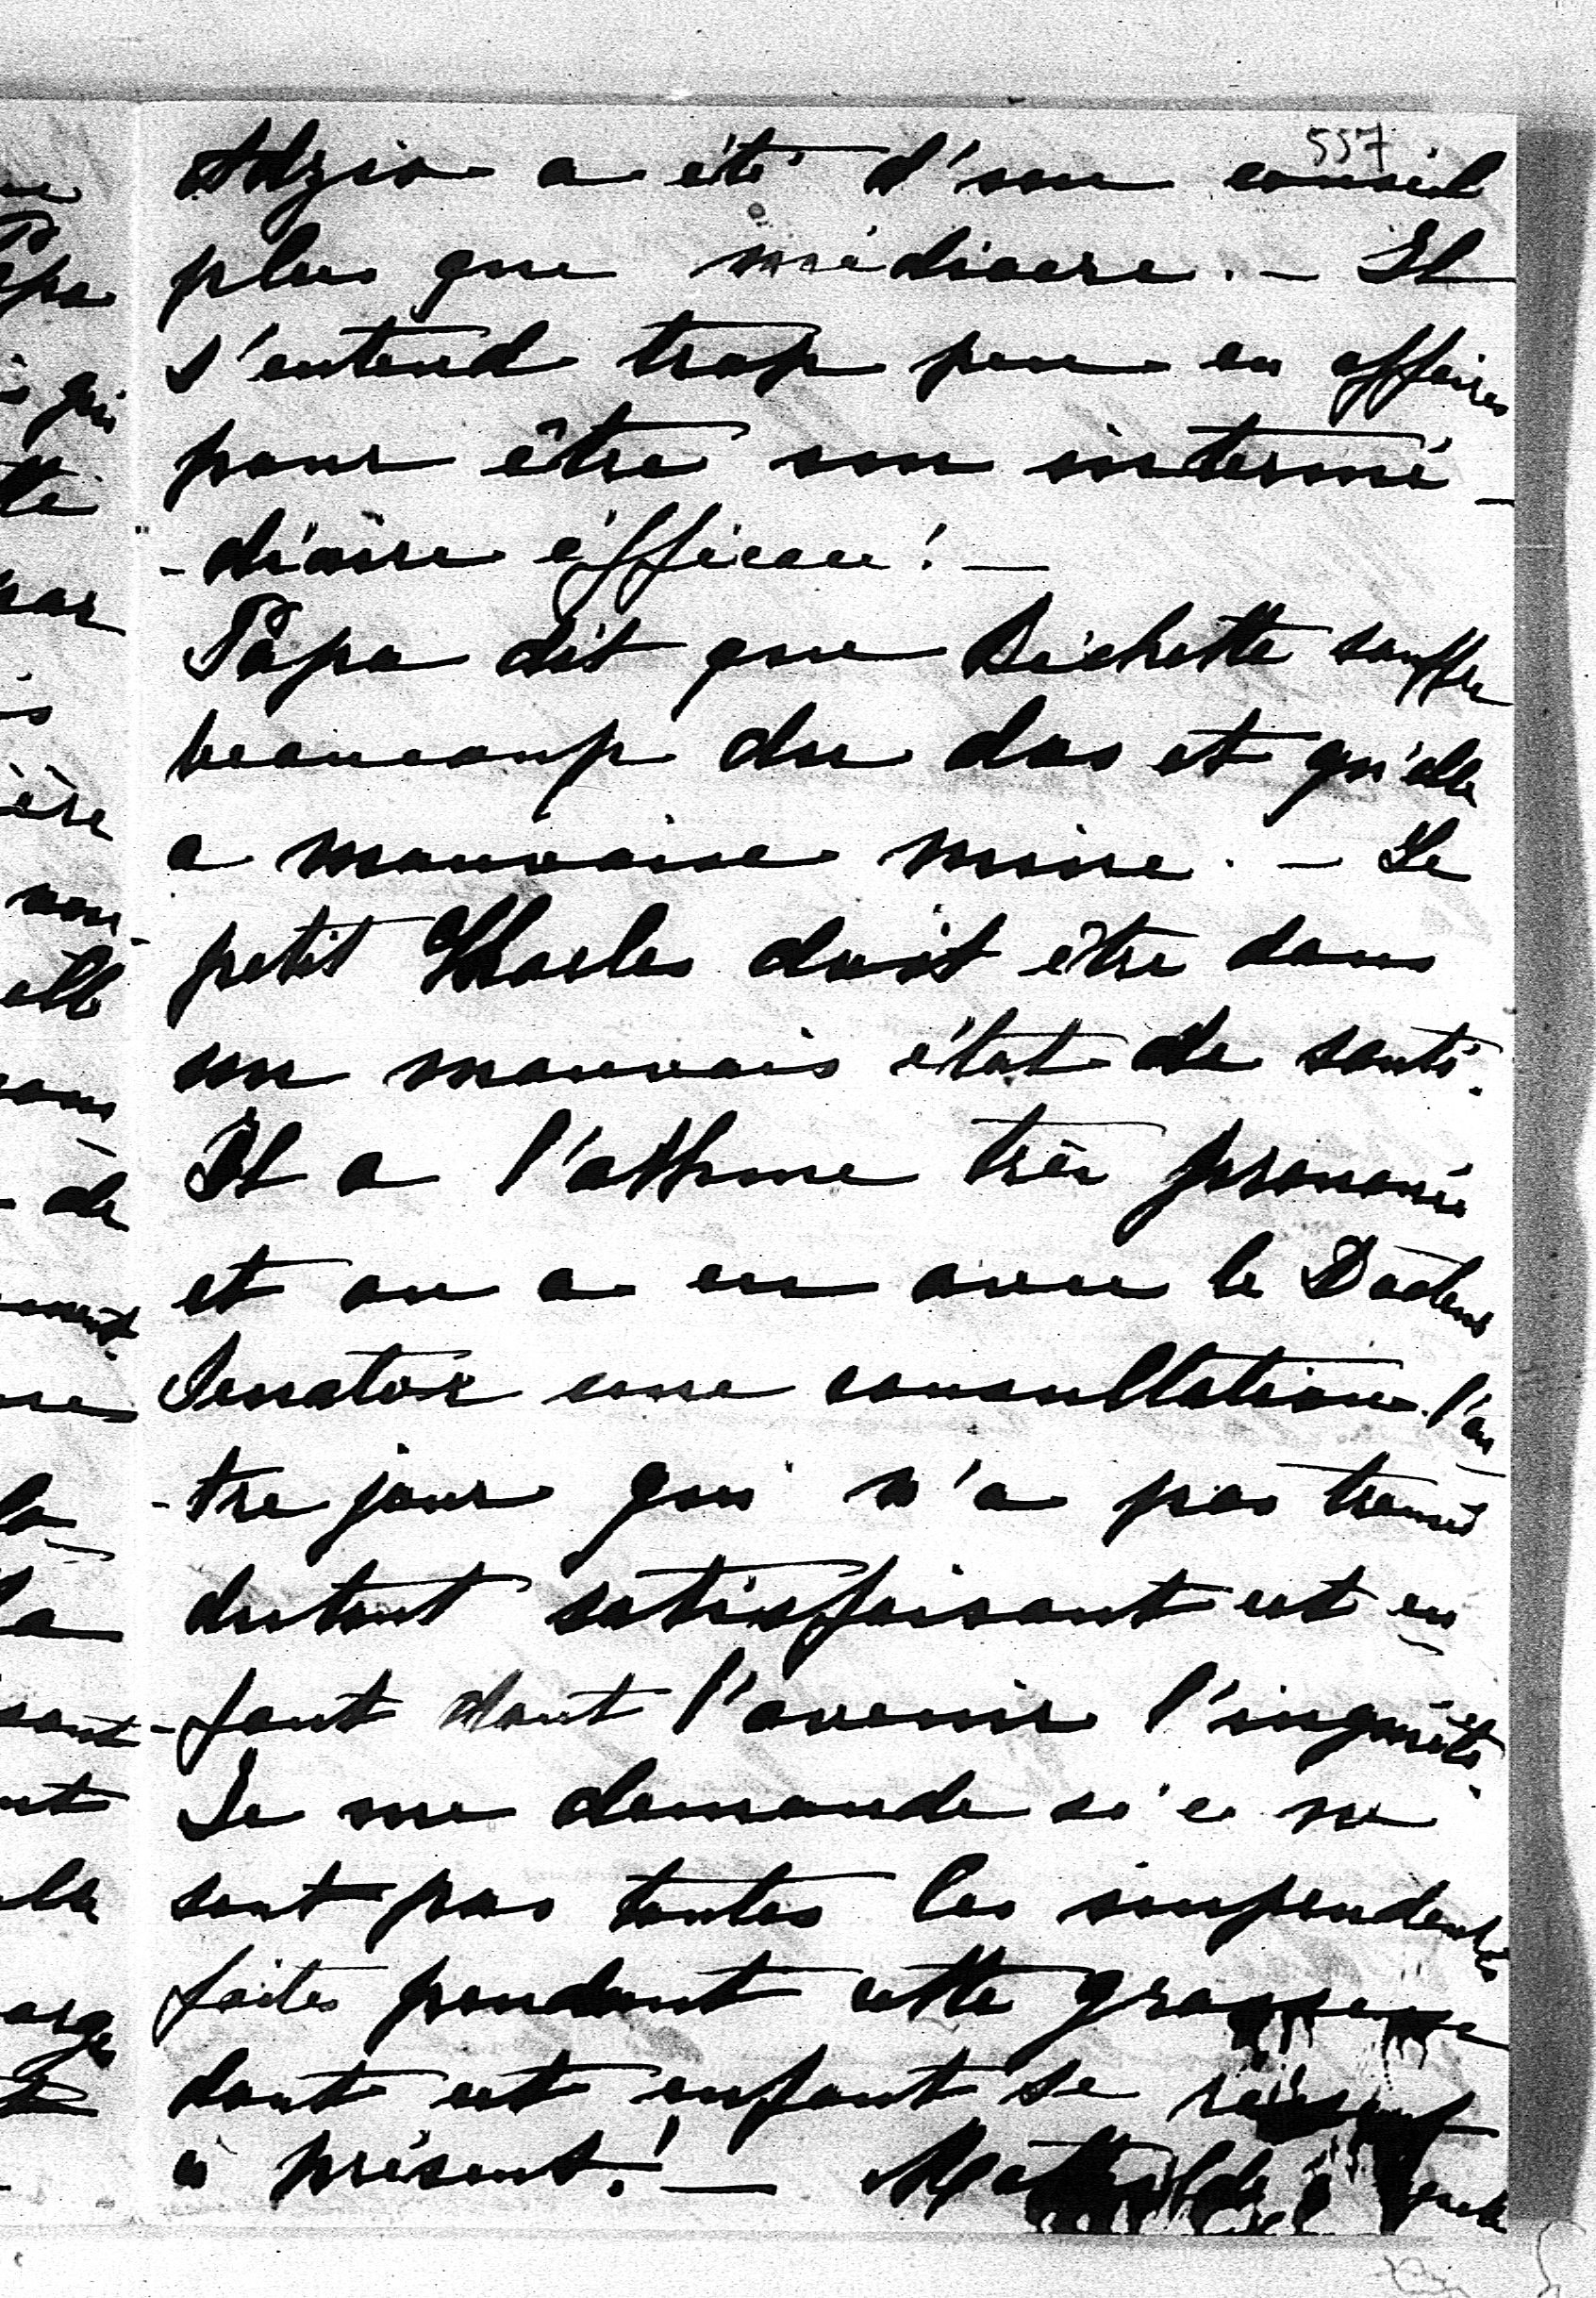 557
Adzio a été d'un conseil
plus que médiocre. — Il
s'entend trop peu en affaires
pour être son intermé-
-diaire éfficace! —
Papa dit que Bichette souffre
beaucoup du dos et qu'elle
a mauvaise mine. — Le
petit Charles doit être dans
un mauvais état de santé.
Il a l'asthme très prononcé
et on a eu avec le Docteur
Senator une consultation l'au
-tre jour qui n'a pas trouvé
du tout satisfaisant cet en
-fant dont l'avenir l'inquiète.
Je me demande si ce ne
sont pas toutes les imprudences
faites pendant cette grossesse
dont cet enfant se ressent
à présent! — Mathilde